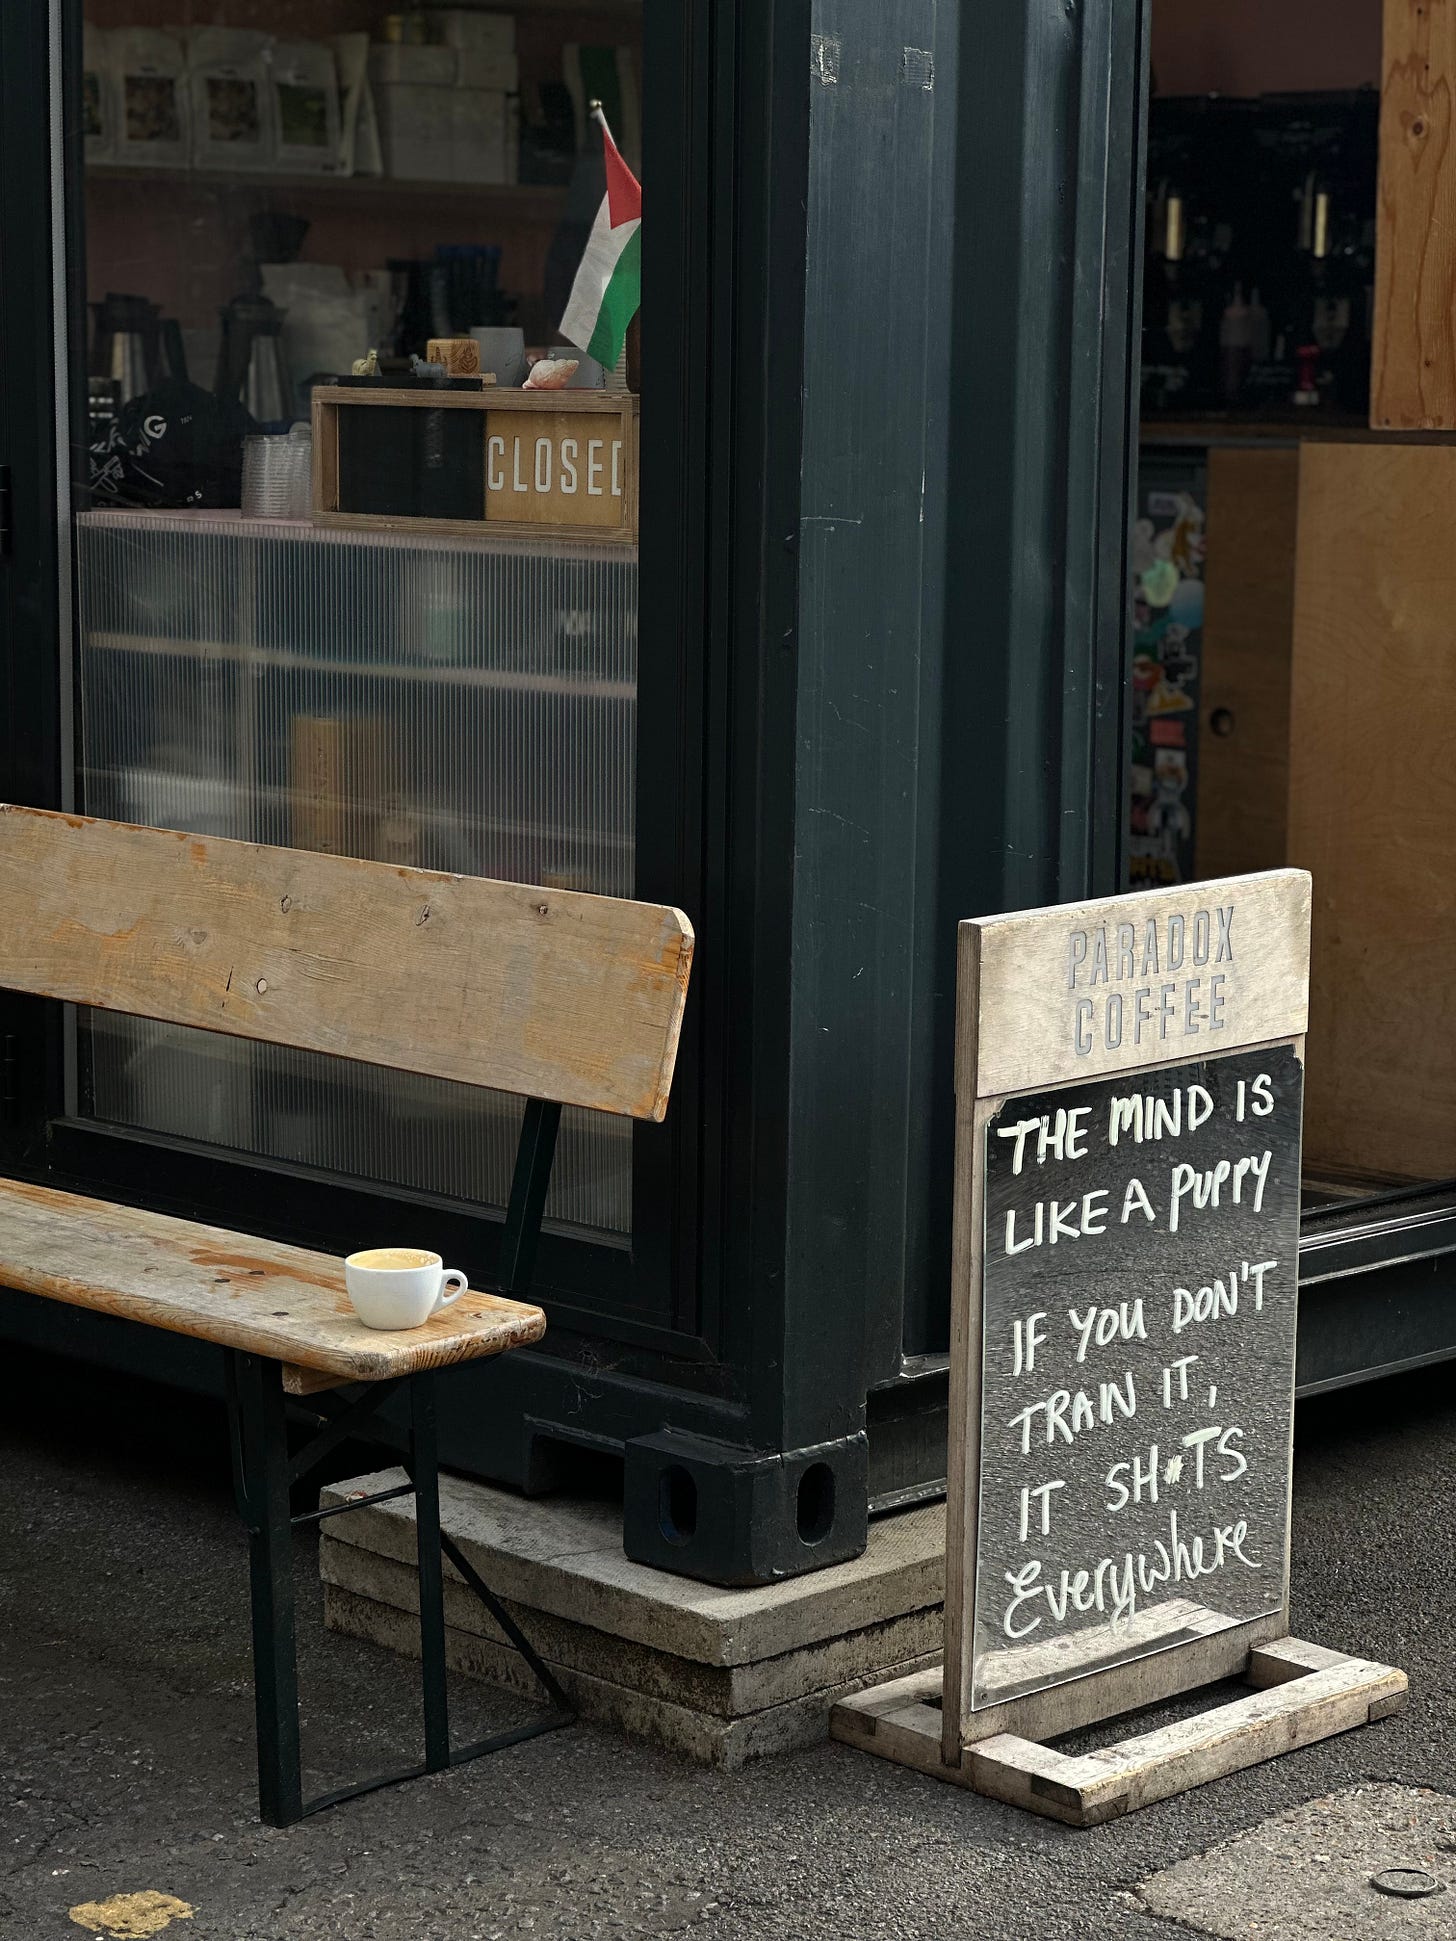 CLOSED
PARADOX
COFFEE
THE MIND IS
LIKE A PUPPY
IF YOU DON'T
TRAIN IT,
IT SH*TS
Everywhere